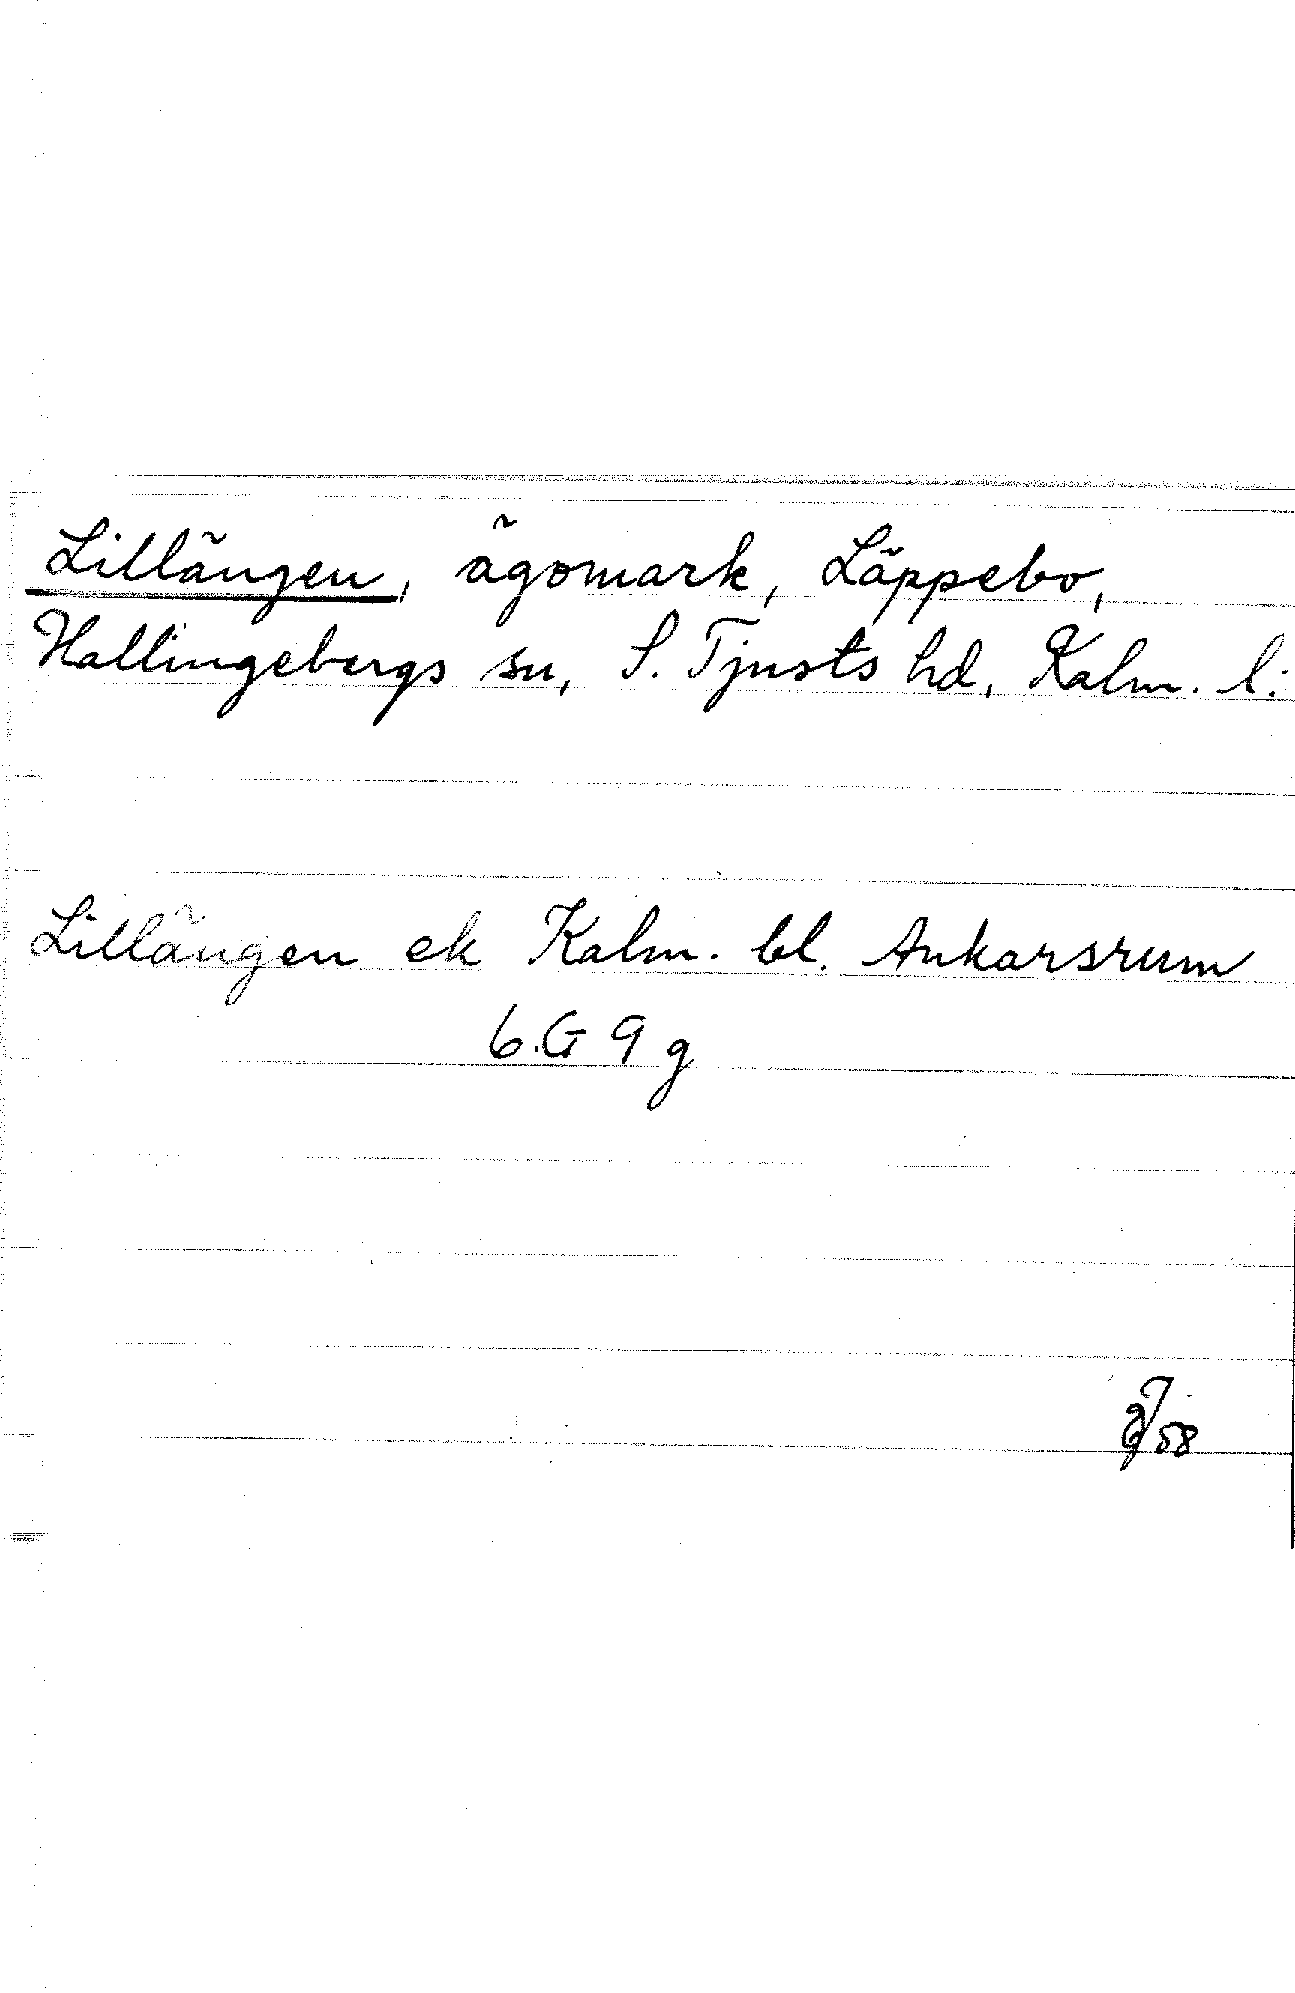 Lillängen, ägomark, Läppebo,
Hallingebergs sn, S. Tjusts hd, Kalm. l.
Lillängen ek Kalm. bl. Ankarsrum
6.G 9 g
58